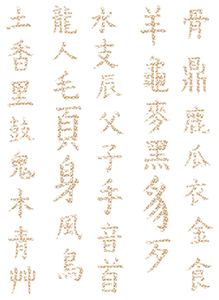 土龍水羊骨
香人支龜鼎
里毛辰麥鹿
鼓頁父黑瓜
鬼身子豸衣
木風手夕金
靑鳥音食
艸首